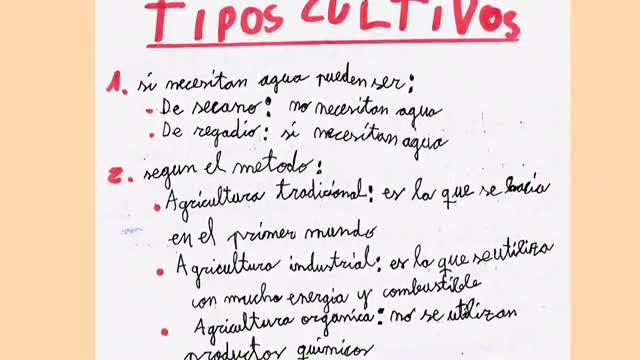 TIPOS CULTIVOS
1. si necesitan agua pueden ser:
• De secano: no necesitan agua
• De regadio: si necesitan agua
2. segun el metodo:
• Agricultura tradicional: es la que se hacia
en el primer mundo
• Agricultura industrial: es la que se utiliza
con mucho energia y combustible
• Agricultura organica: no se utilizan
productos quimicos